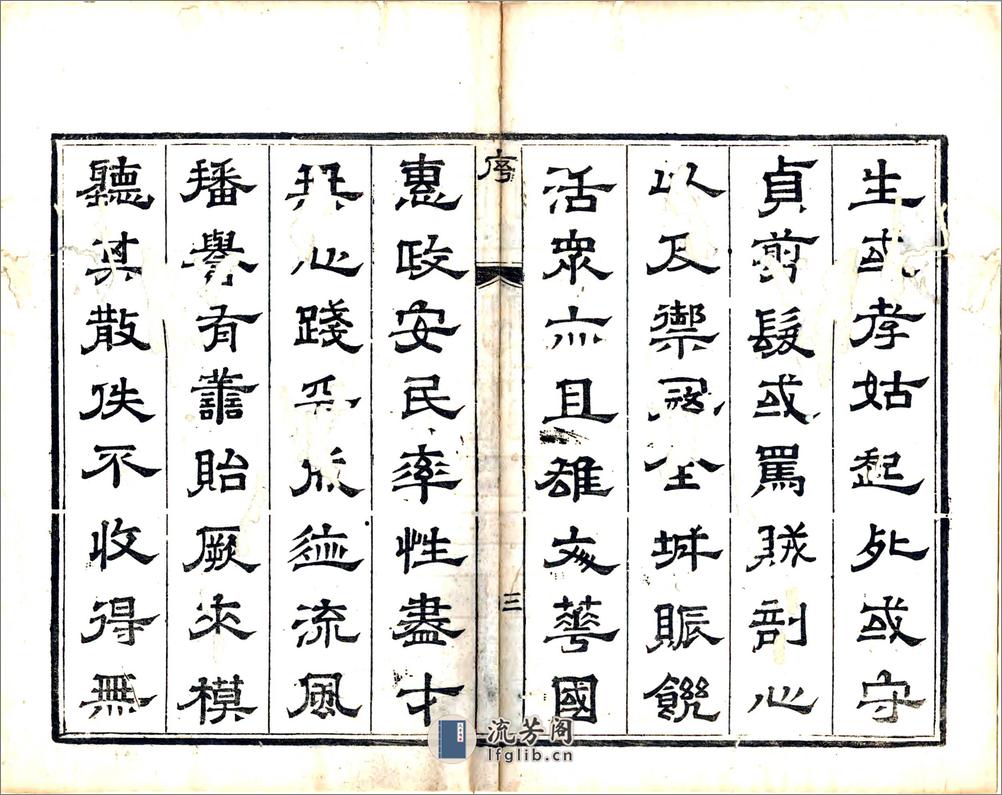 生或孝姑起死或守
貞剪髮或罵賊剖心
以及禦寇全城賑饑
活眾亦且雄文華國
序
三
惠政安民率性盡才
心踐流風
播譽有貽厥來模
聽其散佚不收得無
流芳阁
lfglib.cn